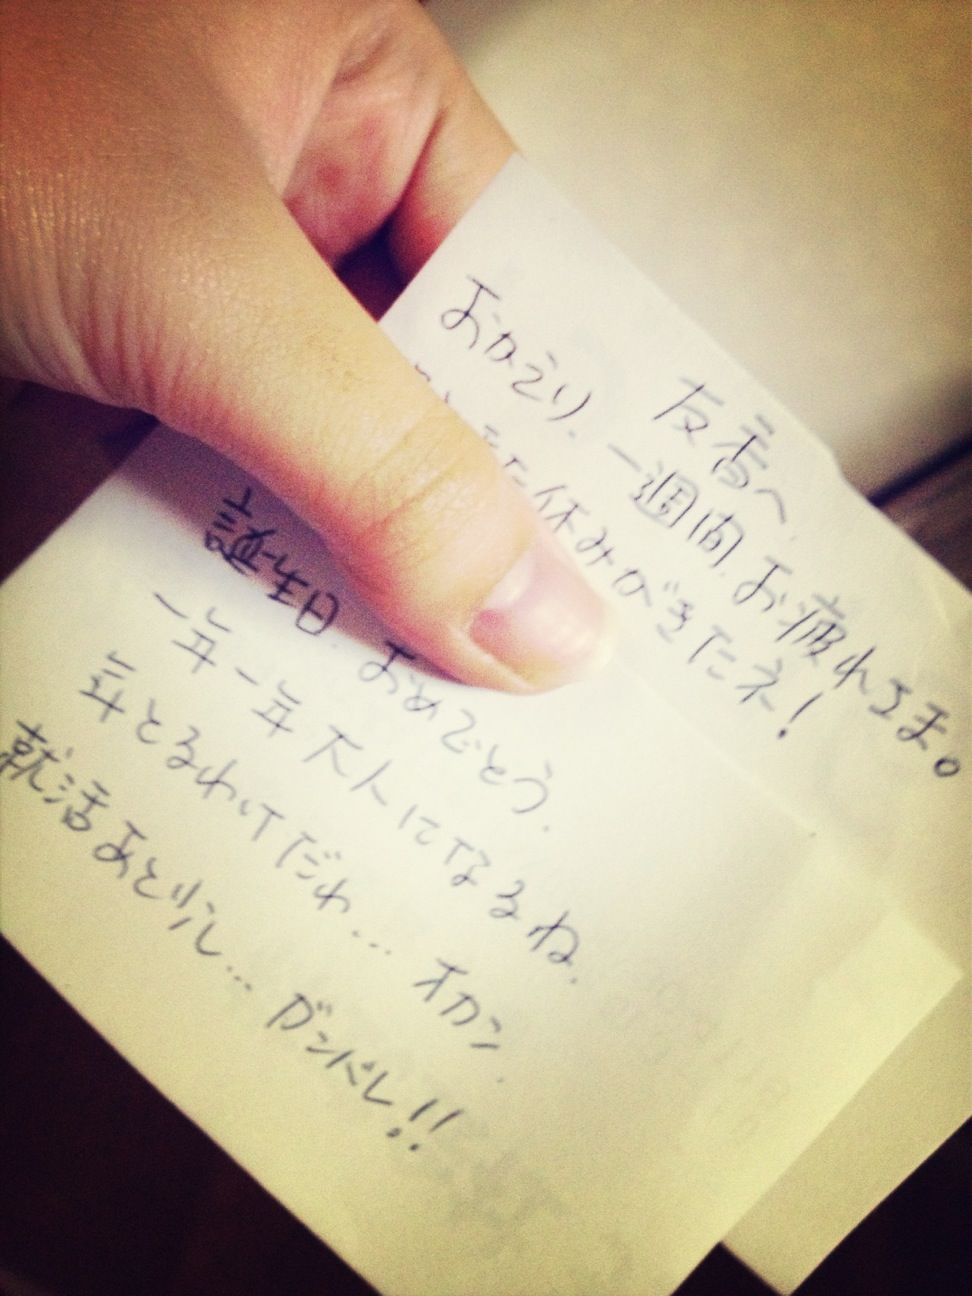 友香へ
おかえり.一週間.お疲れさま。
休みがきたネ!
誕生日.おめでとう.
一年一年大人になるね.
年とるわけだわ… オカン.
就活あと少し… ガンバレ!!